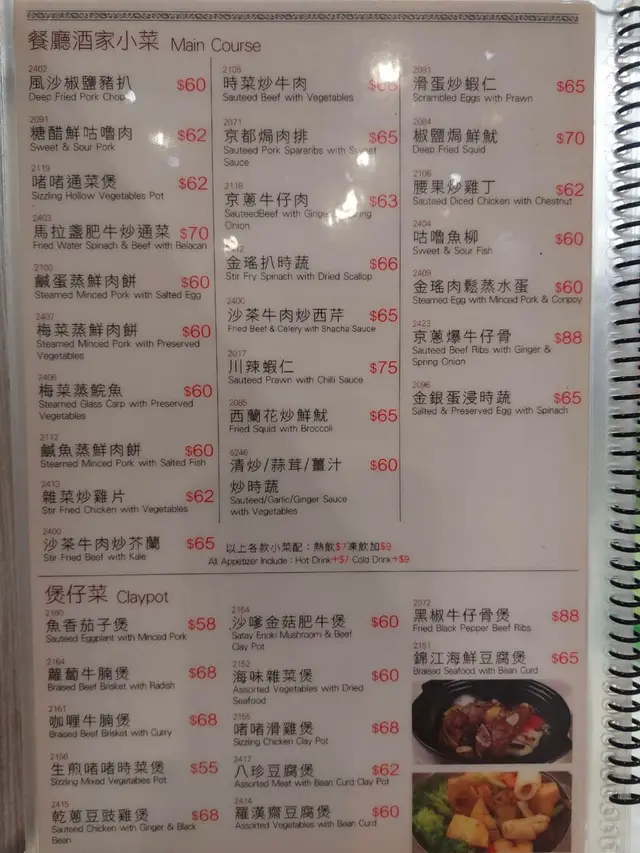 餐廳酒家小菜 Main Course
2402
風沙椒鹽豬扒 $60
Deep Fried Pork Chop
2091
糖醋鮮咕嚕肉 $62
Sweet & Sour Pork
2119
啫啫通菜煲 $62
Sizzling Hollow Vegetables Pot
2403
馬拉盞肥牛炒通菜 $70
Fried Water Spinach & Beef with Belacan
2100
鹹蛋蒸鮮肉餅 $60
Steamed Minced Pork with Salted Egg
2407
梅菜蒸鮮肉餅 $60
Steamed Minced Pork with Preserved
Vegetables
2406
梅菜蒸鯇魚 $60
Steamed Glass Carp with Preserved
Vegetables
2112
鹹魚蒸鮮肉餅 $60
Steamed Minced Pork with Salted Fish
2413
雜菜炒雞片 $62
Stir Fried Chicken with Vegetables
2400
沙茶牛肉炒芥蘭 $65
Stir Fried Beef with Kale
2105
時菜炒牛肉
Sauteed Beef with Vegetables
2071
京都焗肉排 $65
Sauteed Pork Spareribs with Sweet
Sauce
2118
京蔥牛仔肉 $63
SauteedBeef with Ginger Spring
Onion
金瑤扒時蔬 $66
Stir Fry Spinach with Dried Scallop
2400
沙茶牛肉炒西芹 $65
Fried Beef & Celery with Shacha Sauce
2017
川辣蝦仁 $75
Sauteed Prawn with Chilli Sauce
2085
西蘭花炒鮮魷 $65
Fried Squid with Broccoli
6246
清炒/蒜茸/薑汁 $60
炒時蔬
Sauteed/Garlic/Ginger Sauce
with Vegetables
2091
滑蛋炒蝦仁 $65
Scrambled Eggs with Prawn
2084
椒鹽焗鮮魷 $70
Deep Fried Squid
2106
腰果炒雞丁 $62
Sauteed Diced Chicken with Chestnut
2404
咕嚕魚柳 $60
Sweet & Sour Fish
2409
金瑤肉鬆蒸水蛋 $60
Steamed Egg with Minced Pork & Conpoy
2423
京蔥爆牛仔骨 $88
Sauteed Beef Ribs with Ginger &
Spring Onion
2096
金銀蛋浸時蔬 $65
Salted & Preserved Egg with Spinach
以上各款小菜配：熱飲$7凍飲加$9
All Appetizer Include : Hot Drink+$7 Cold Drink+$9
煲仔菜 Claypot
2160
魚香茄子煲 $58
Sauteed Eggplant with Minced Pork
2164
蘿蔔牛腩煲 $68
Braised Beef Brisket with Radish
2161
咖喱牛腩煲 $68
Braised Beef Brisket with Curry
2156
生煎啫啫時菜煲 $55
Sizzling Mixed Vegetables Pot
2415
乾蔥豆豉雞煲 $68
Sauteed Chicken with Ginger & Black
Bean
2154
沙嗲金菇肥牛煲 $60
Satay Enoki Mushroom & Beef
Clay Pot
2152
海味雜菜煲 $60
Assorted Vegetables with Dried
Seafood
2155
啫啫滑雞煲 $68
Sizzling Chicken Clay Pot
2417
八珍豆腐煲 $62
Assorted Meat with Bean Curd Clay Pot
2414
羅漢齋豆腐煲 $60
Assorted Vegetables with Bean Curd
2072
黑椒牛仔骨煲 $88
Fried Black Pepper Beef Ribs
2151
錦江海鮮豆腐煲 $65
Braised Seafood with Bean Curd